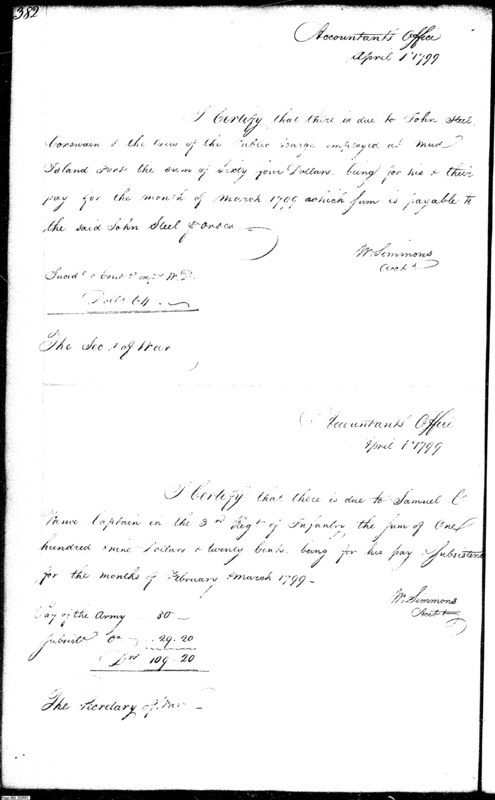 382
Accountants Office
April 1st 1799
I Certify that there is due to John Steel
Coxswain & the crew of the Public Barge employed at Mud
Island Fort the sum of Sixty four Dollars. being for his & their
pay for the month of March 1799 which sum is payable to
the said John Steel or order
Wm Simmons
Acct
Incidl & Contt expt W.D.
Dolls 64
The Secy of War
Accountants Office
April 1st 1799
I Certify that there is due to Samuel C
Vance Captain in the 3rd Regt of Infantry the sum of One
hundred & nine Dollars & twenty Cents. being for his pay & Subsistence
for the months of February & March 1799
Wm Simmons
Acct
Pay of the Army 80
Subsistce Do 29.20
Drs 109.20
The Secretary of War